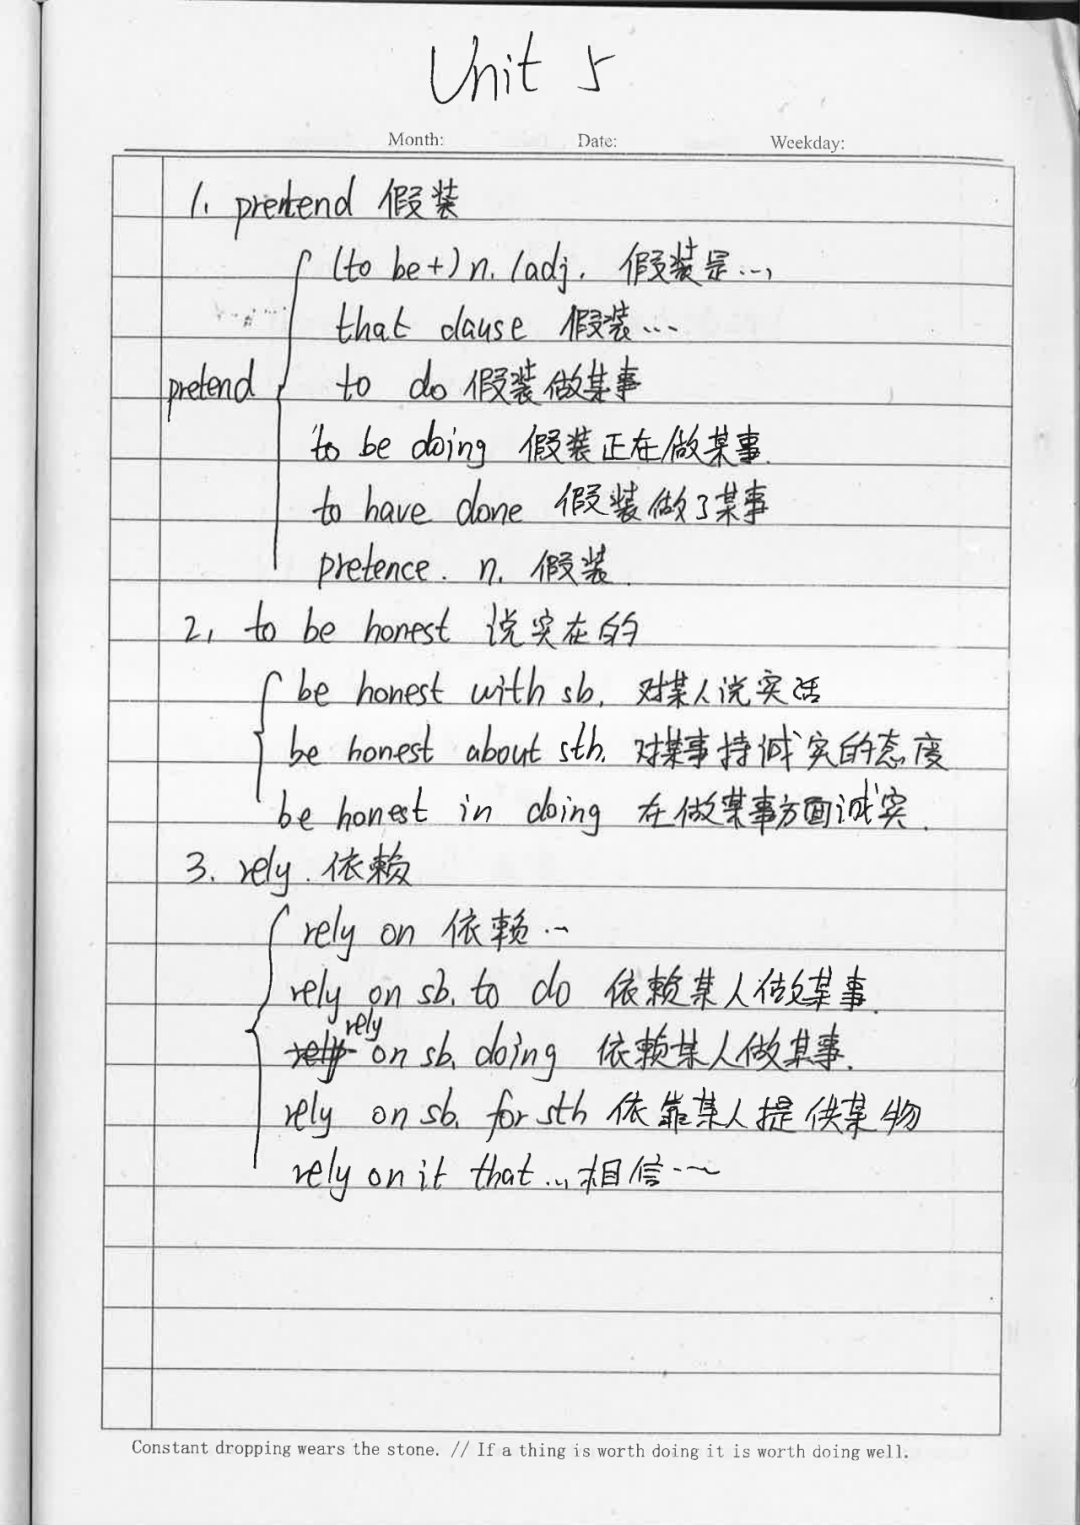 Unit 5
Month: Date: Weekday:
1. pretend 假装
(to be+) n. /adj. 假装是...
that clause 假装...
pretend to do 假装做某事
to be doing 假装正在做某事.
to have done 假装做了某事
pretence. n. 假装.
2. to be honest 说实在的
be honest with sb. 对某人说实话
be honest about sth. 对某事持诚实的态度
be honest in doing 在做某事方面诚实.
3. rely. 依赖
rely on 依赖...
rely on sb. to do 依赖某人做某事.
rely on sb. doing 依赖某人做某事.
rely on sb. for sth 依靠某人提供某物
rely on it that ... 相信...
Constant dropping wears the stone. // If a thing is worth doing it is worth doing well.